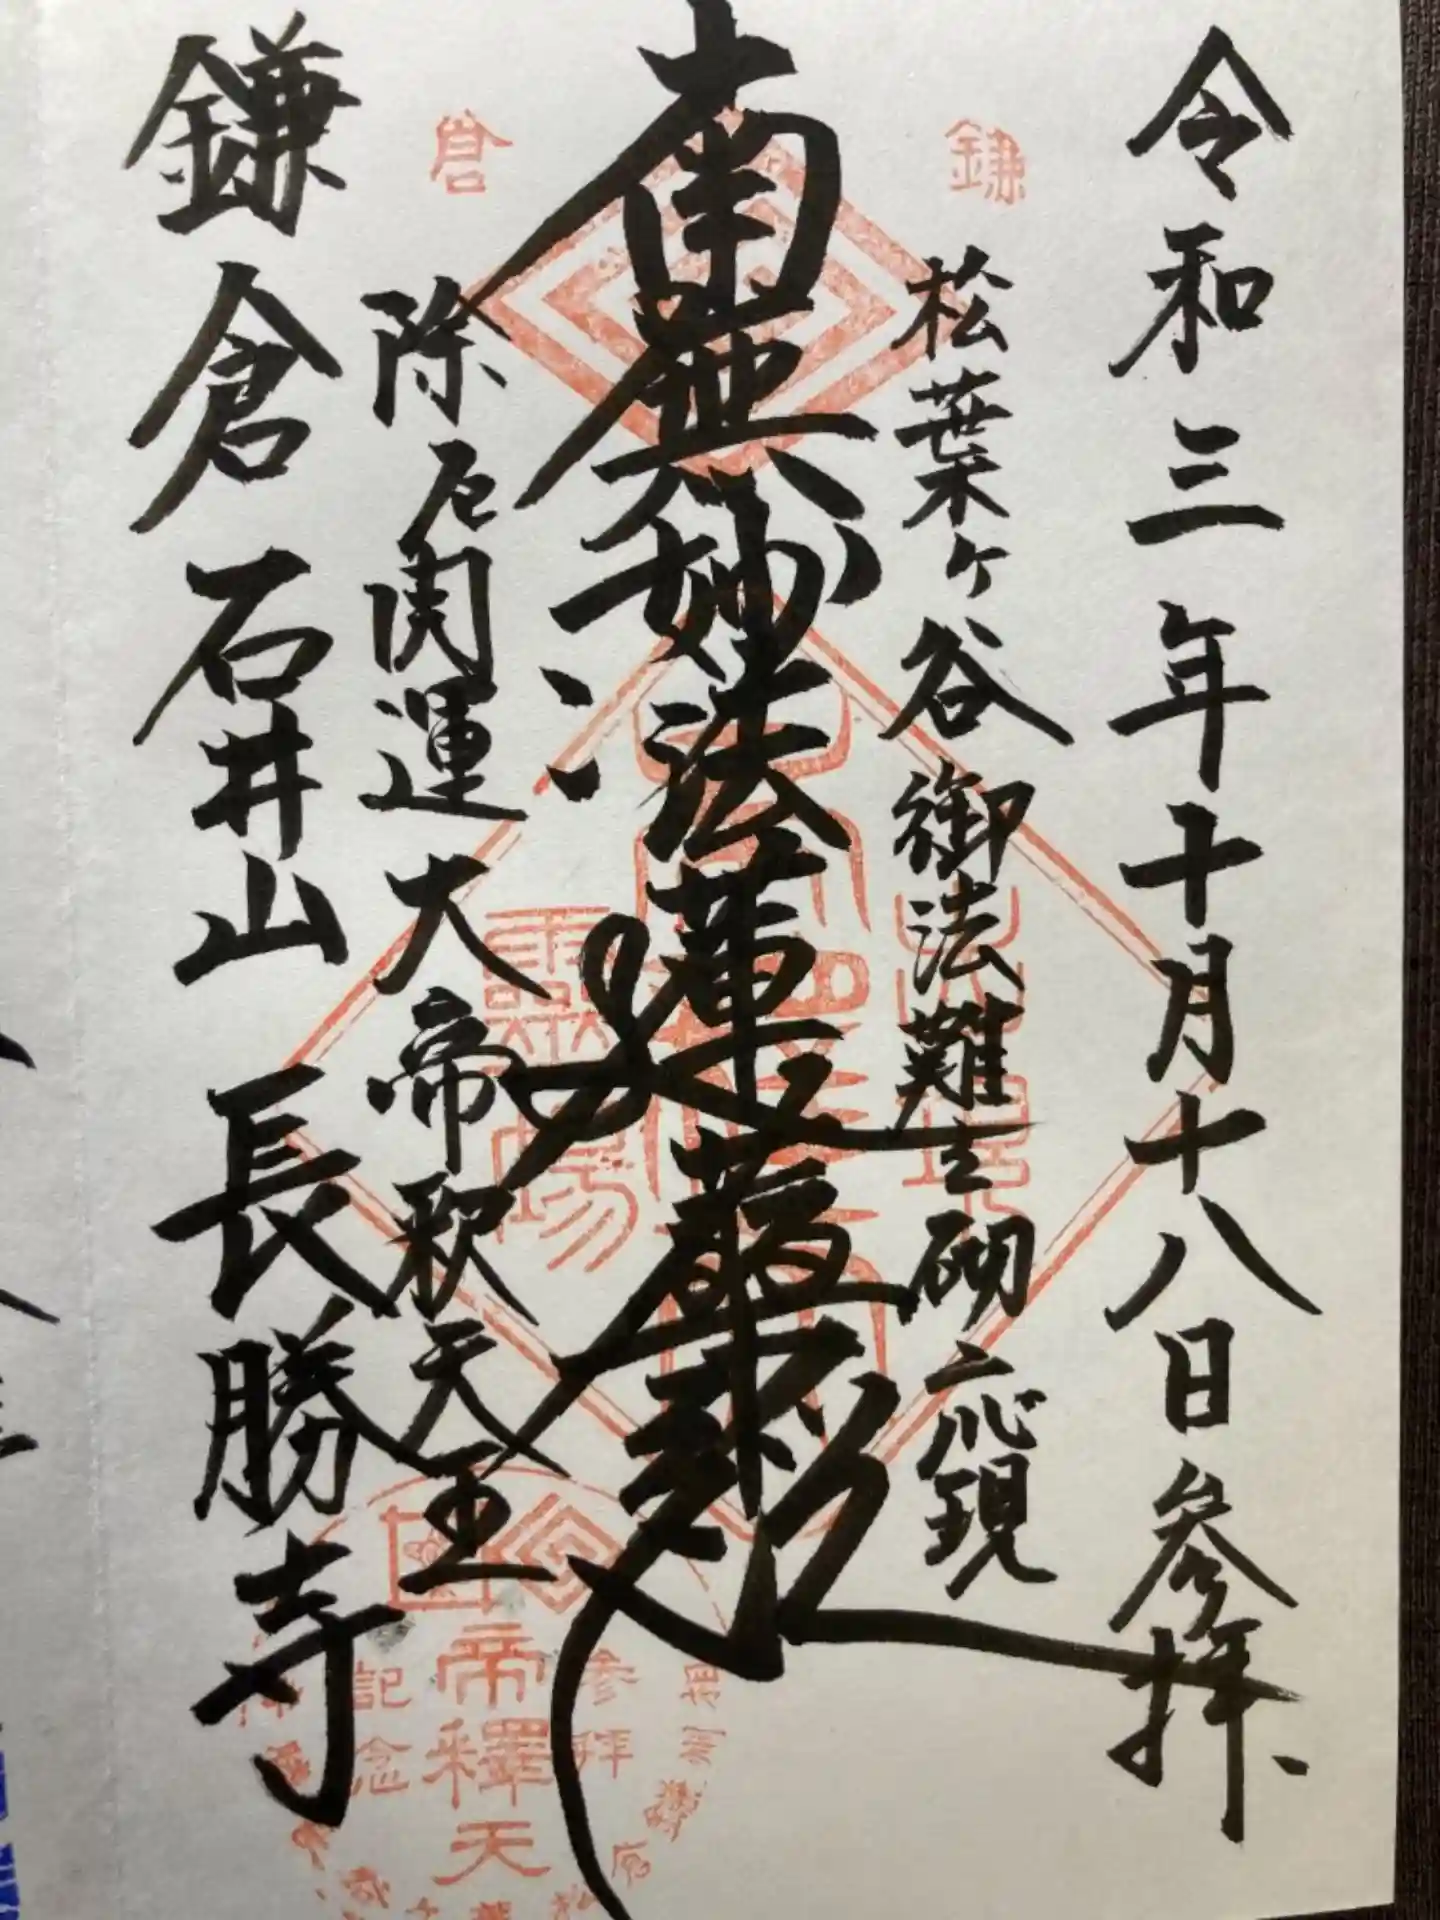 令和三年十月十八日参拝
松葉ヶ谷御法難之砌ニ応現
南無妙法蓮華経
除厄開運大帝釈天王
鎌倉石井山長勝寺
鎌倉
霊場
参拝
帝釋天
記念